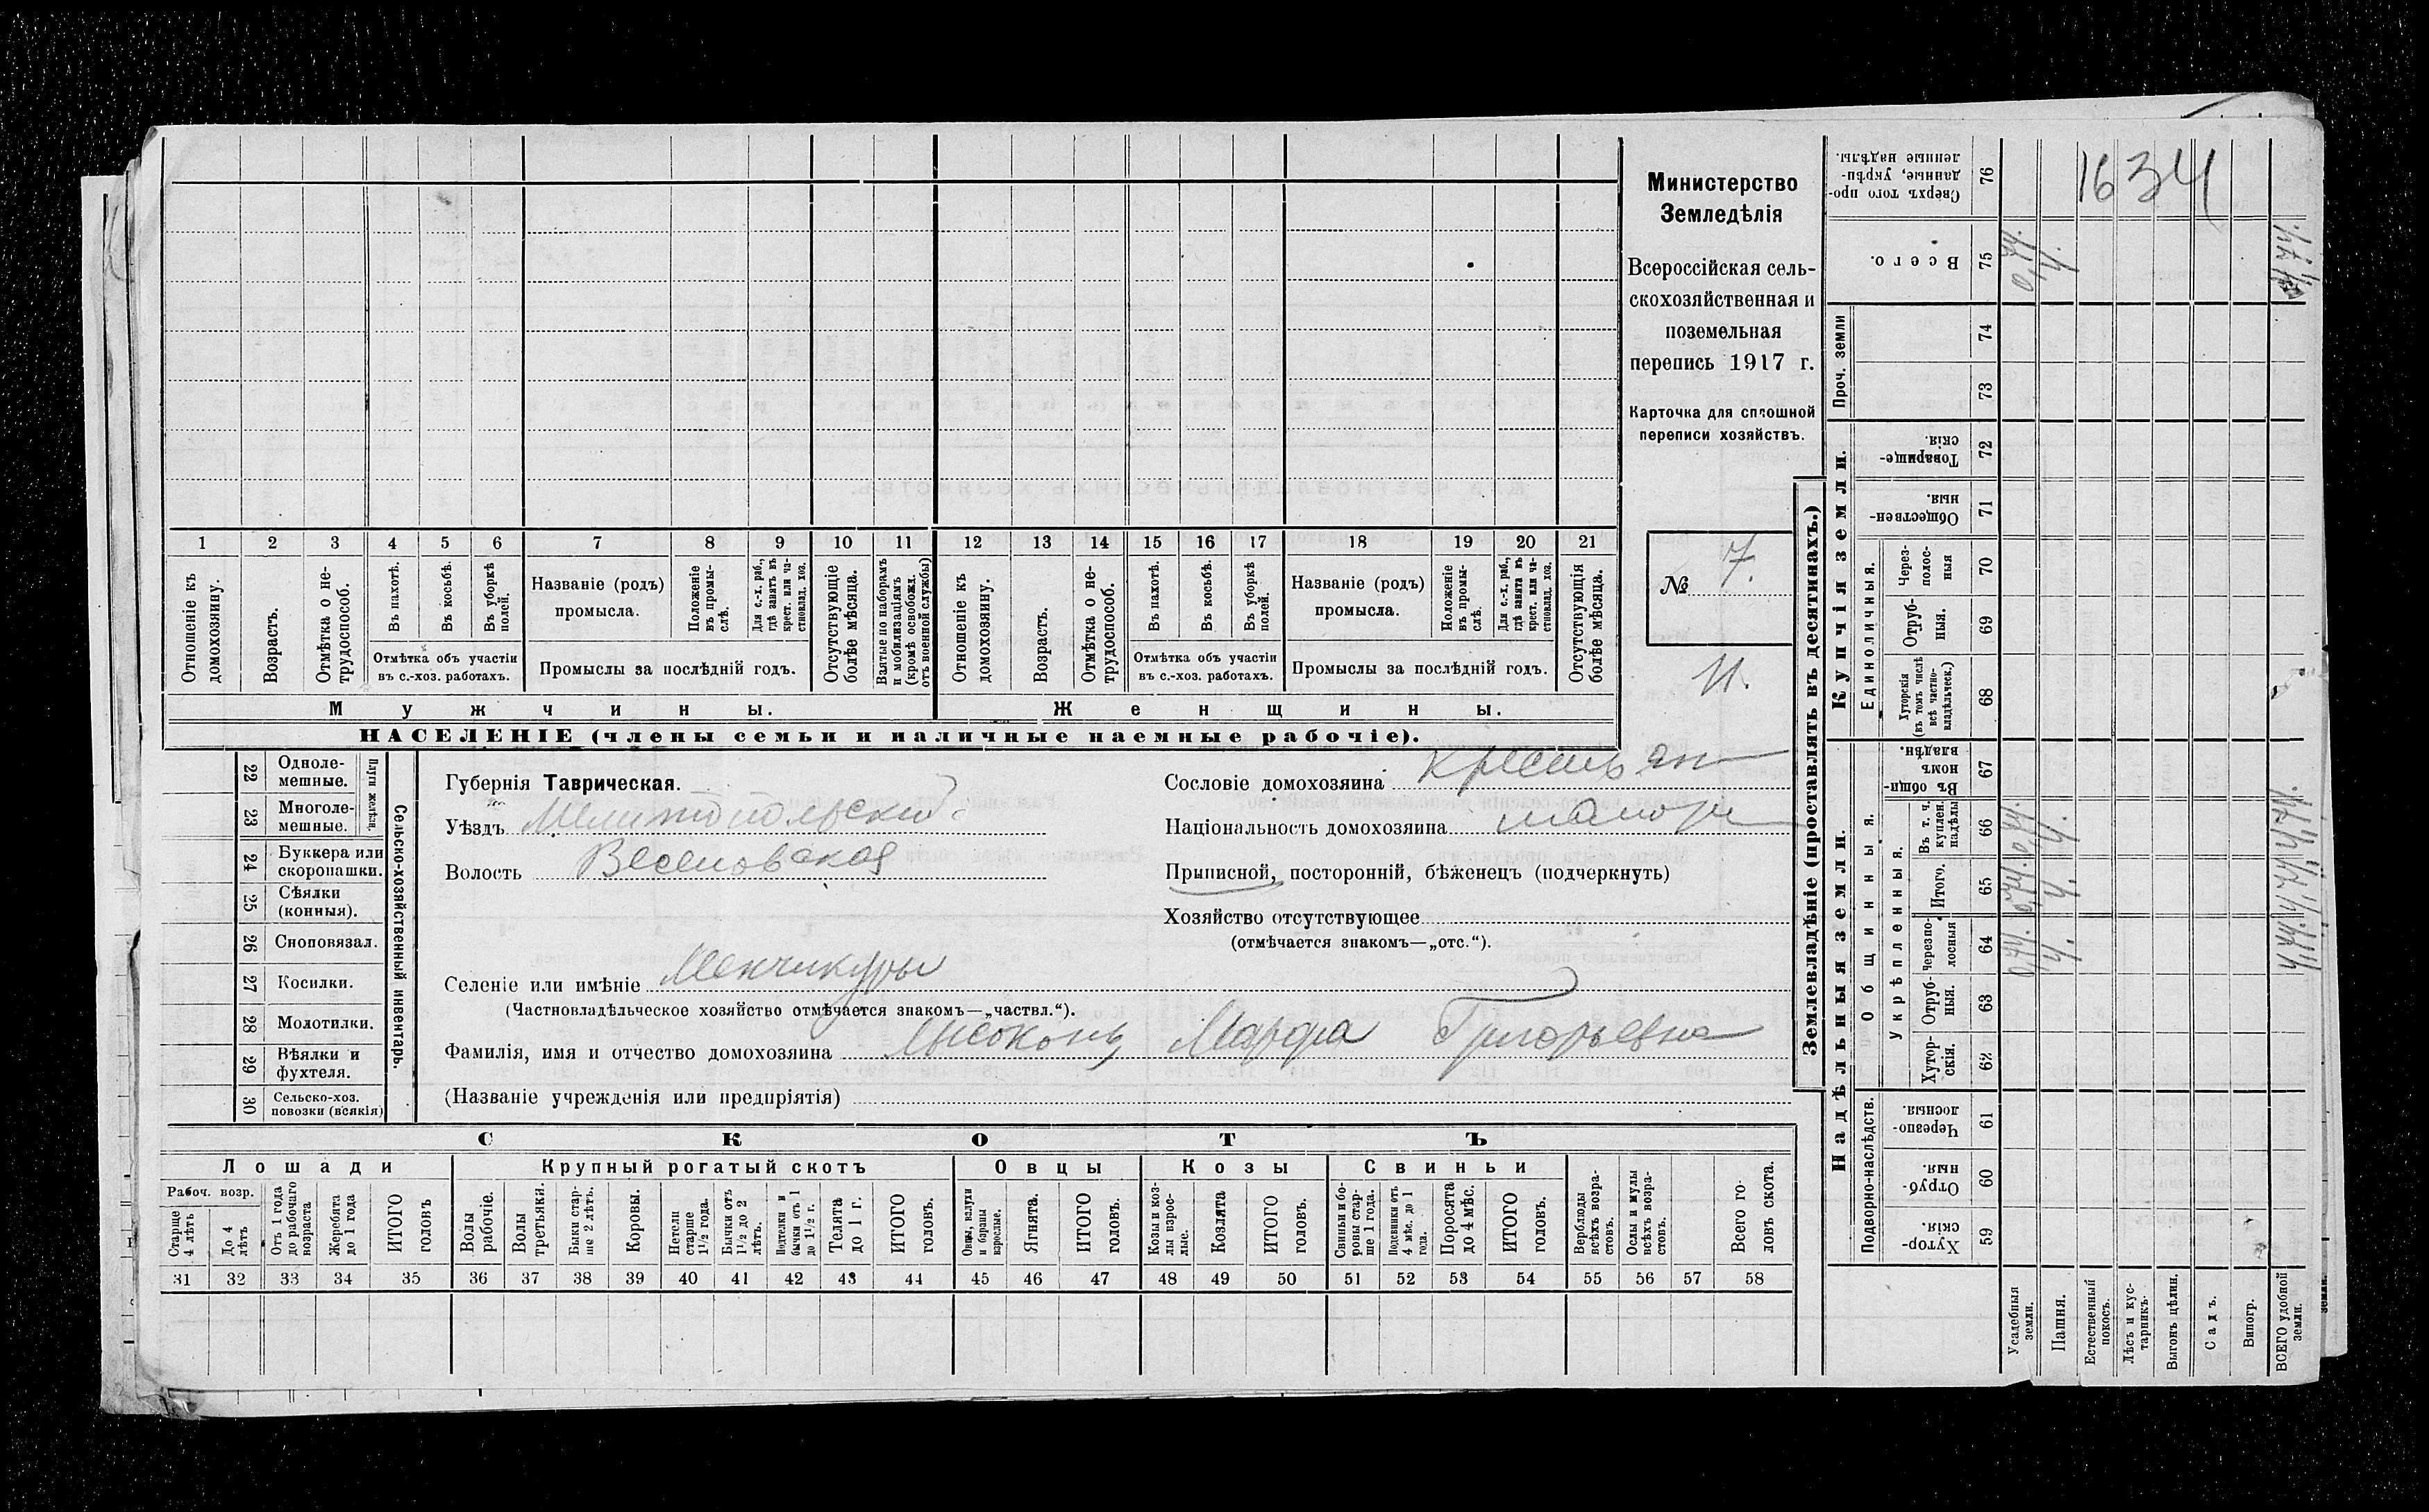 1 2 3 4 5 6 7 8 9 10 11 12 13 14 15 16 17 18 19 20 21
Отношеніе къ домохозяину.
Возрастъ.
Отмѣтка о не-
трудоспособ.
Въ пахотѣ.
Въ косьбѣ.
Въ уборкѣ
полей.
Отмѣтка объ участіи
въ с.-хоз. работахъ.
Названіе (родъ)
промысла.
Положеніе
въ промы-
слѣ.
Для с.-х. раб.,
гдѣ занятъ въ
крест. или ча-
стновлад. хоз.
Промыслы за послѣдній годъ.
Отсутствующіе
болѣе мѣсяца.
Взятые по наборамъ
и мобилизаціямъ
(кромѣ освобожд.
отъ военной службы)
Отношеніе къ
домохозяину.
Возрастъ.
Отмѣтка о не-
трудоспособ.
Въ пахотѣ.
Въ косьбѣ.
Въ уборкѣ
полей.
Отмѣтка объ участіи
въ с.-хоз. работахъ.
Названіе (родъ)
промысла.
Положеніе
въ промы-
слѣ.
Для с.-х. раб.,
гдѣ занята въ
крест. или ча-
стновлад. хоз.
Промыслы за послѣдній годъ.
Отсутствующія
болѣе мѣсяца.
Мужчины.
Женщины.
НАСЕЛЕНІЕ (члены семьи и наличные наемные рабочіе).
Министерство
Земледѣлія
Всероссійская сель-
скохозяйственная и
поземельная
перепись 1917 г.
Карточка для сплошной
переписи хозяйствъ.
№ 7.
11.
22 Одноле-
мешные.
23 Многоле-
мешные.
Плуги желѣзн.
24 Буккера или
скоропашки.
25 Сѣялки
(конныя).
26 Сноповязал.
27 Косилки.
28 Молотилки.
29 Вѣялки и
фухтеля.
30 Сельско-хоз.
повозки (всякія)
Сельско-хозяйственный инвентарь.
Губернія Таврическая.
Уѣздъ Мелитопольский
Волость Веселовская
Сословіе домохозяина Крестьян
Національность домохозяина малорос
Приписной, посторонній, бѣженецъ (подчеркнуть)
Хозяйство отсутствующее
(отмѣчается знакомъ—„отс.“).
Селеніе или имѣніе Менчикуры
(Частновладѣльческое хозяйство отмѣчается знакомъ—„частвл.“).
Фамилія, имя и отчество домохозяина Лысоконь Марфа Григорьевна
(Названіе учрежденія или предпріятія)
СКОТЪ
Лошади
Рабоч. возр.
Старше
4 лѣтъ
До 4
лѣтъ
Отъ 1 года
до рабочаго
возраста
Жеребята
до 1 года
ИТОГО
головъ
Крупный рогатый скотъ
Волы
рабочіе.
Волы
третьяки.
Быки стар-
ше 2 лѣтъ.
Коровы.
Нетели
старше
1½ года.
Бычки отъ
1½ до 2
лѣтъ.
Подтелки и
бычки отъ 1
до 1½ г.
Телята
до 1 г.
ИТОГО
головъ.
Овцы
Овцы, валухи
и бараны
взрослые.
Ягнята.
ИТОГО
головъ.
Козы
Козы и коз-
лы взрос-
лые.
Козлята
ИТОГО
головъ.
Свиньи
Свиньи и бо-
ровы стар-
ше 1 года.
Подсвинки отъ
4 мѣс. до 1
года.
Поросята
до 4 мѣс.
ИТОГО
головъ.
Верблюды
всѣхъ возра-
стовъ.
Ослы и мулы
всѣхъ возра-
стовъ.
Всего го-
ловъ скота.
31 32 33 34 35 36 37 38 39 40 41 42 43 44 45 46 47 48 49 50 51 52 53 54 55 56 57 58
Землевладѣніе (проставлять въ десятинахъ.)
Купчія земли.
Сверхъ того про-
данные, укрѣп-
ленные надѣлы.
76
1634
Всего.
75
Проч. земли
74
73
Товарище-
скія.
72
Обществен-
ныя.
71
Единоличныя.
Через-
полос-
ныя
70
Отруб-
ныя.
69
Хуторскія
(въ томъ числѣ
всѣ частно-
владѣльческ.)
68
Надѣльныя земли.
Общинныя.
Въ общин-
номъ
владѣн.
67
Укрѣпленныя.
Въ т. ч.
куплен.
надѣлы
66
Итого.
65
Черезпо-
лосныя
64
Отруб-
ныя.
63
Хутор-
скія.
62
Подворно-наслѣдств.
Черезпо-
лосныя.
61
Отруб-
ныя.
60
Хутор-
скія.
59
Усадебныя
земли.
Пашня.
Естественный
покосъ.
Лѣсъ и кус-
тарникъ.
Выгонъ цѣлин.
Садъ.
Виногр.
ВСЕГО удобной
земли.